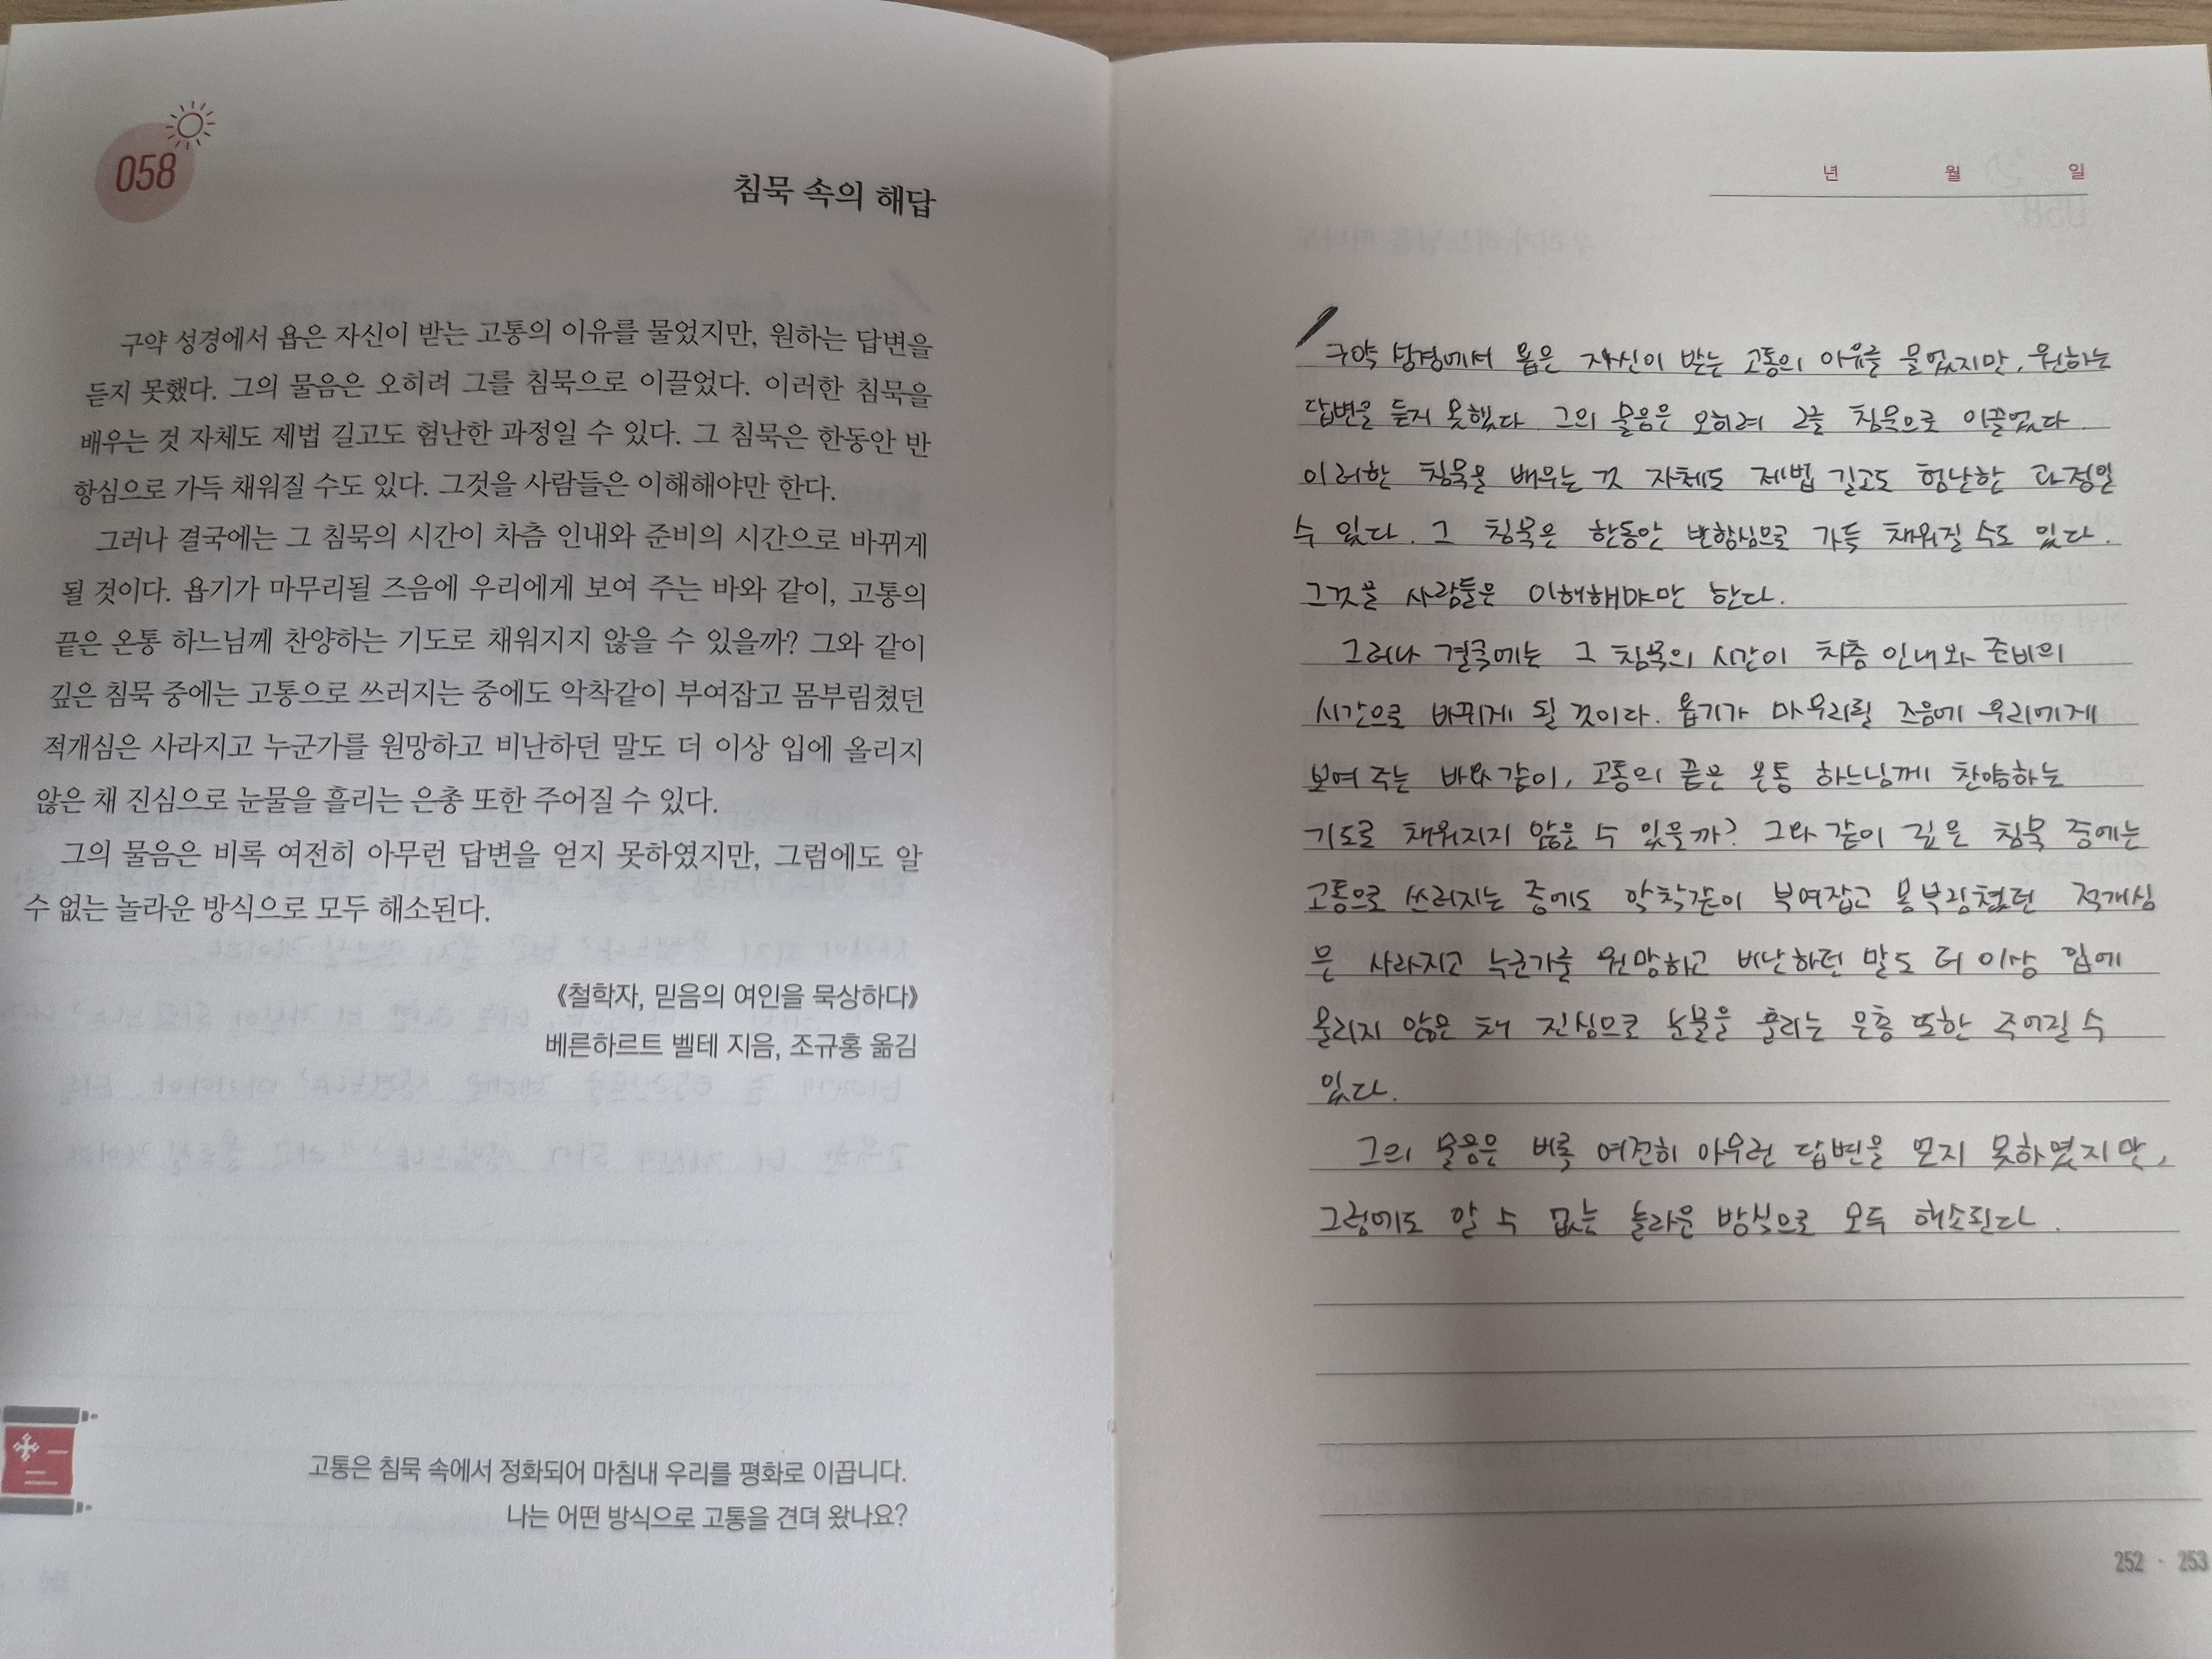 058
침묵 속의 해답
구약 성경에서 욥은 자신이 받는 고통의 이유를 물었지만, 원하는 답변을
듣지 못했다. 그의 물음은 오히려 그를 침묵으로 이끌었다. 이러한 침묵을
배우는 것 자체도 제법 길고도 험난한 과정일 수 있다. 그 침묵은 한동안 반
항심으로 가득 채워질 수도 있다. 그것을 사람들은 이해해야만 한다.
그러나 결국에는 그 침묵의 시간이 차츰 인내와 준비의 시간으로 바뀌게
될 것이다. 욥기가 마무리될 즈음에 우리에게 보여 주는 바와 같이, 고통의
끝은 온통 하느님께 찬양하는 기도로 채워지지 않을 수 있을까? 그와 같이
깊은 침묵 중에는 고통으로 쓰러지는 중에도 악착같이 부여잡고 몸부림쳤던
적개심은 사라지고 누군가를 원망하고 비난하던 말도 더 이상 입에 올리지
않은 채 진심으로 눈물을 흘리는 은총 또한 주어질 수 있다.
그의 물음은 비록 여전히 아무런 답변을 얻지 못하였지만, 그럼에도 알
수 없는 놀라운 방식으로 모두 해소된다.
《철학자, 믿음의 여인을 묵상하다》
베른하르트 벨테 지음, 조규홍 옮김
고통은 침묵 속에서 정화되어 마침내 우리를 평화로 이끕니다.
나는 어떤 방식으로 고통을 견뎌 왔나요?
년 월 일
구약 성경에서 욥은 자신이 받는 고통의 이유를 물었지만, 원하는
답변을 듣지 못했다. 그의 물음은 오히려 그를 침묵으로 이끌었다.
이러한 침묵을 배우는 것 자체도 제법 길고도 험난한 과정일
수 있다. 그 침묵은 한동안 반항심으로 가득 채워질 수도 있다.
그것을 사람들은 이해해야만 한다.
그러나 결국에는 그 침묵의 시간이 차츰 인내와 준비의
시간으로 바뀌게 될 것이다. 욥기가 마무리될 즈음에 우리에게
보여 주는 바와 같이, 고통의 끝은 온통 하느님께 찬양하는
기도로 채워지지 않을 수 있을까? 그와 같이 깊은 침묵 중에는
고통으로 쓰러지는 중에도 악착같이 부여잡고 몸부림쳤던 적개심
은 사라지고 누군가를 원망하고 비난하던 말도 더 이상 입에
올리지 않은 채 진심으로 눈물을 흘리는 은총 또한 주어질 수
있다.
그의 물음은 비록 여전히 아무런 답변을 얻지 못하였지만,
그럼에도 알 수 없는 놀라운 방식으로 모두 해소된다.
252 · 253